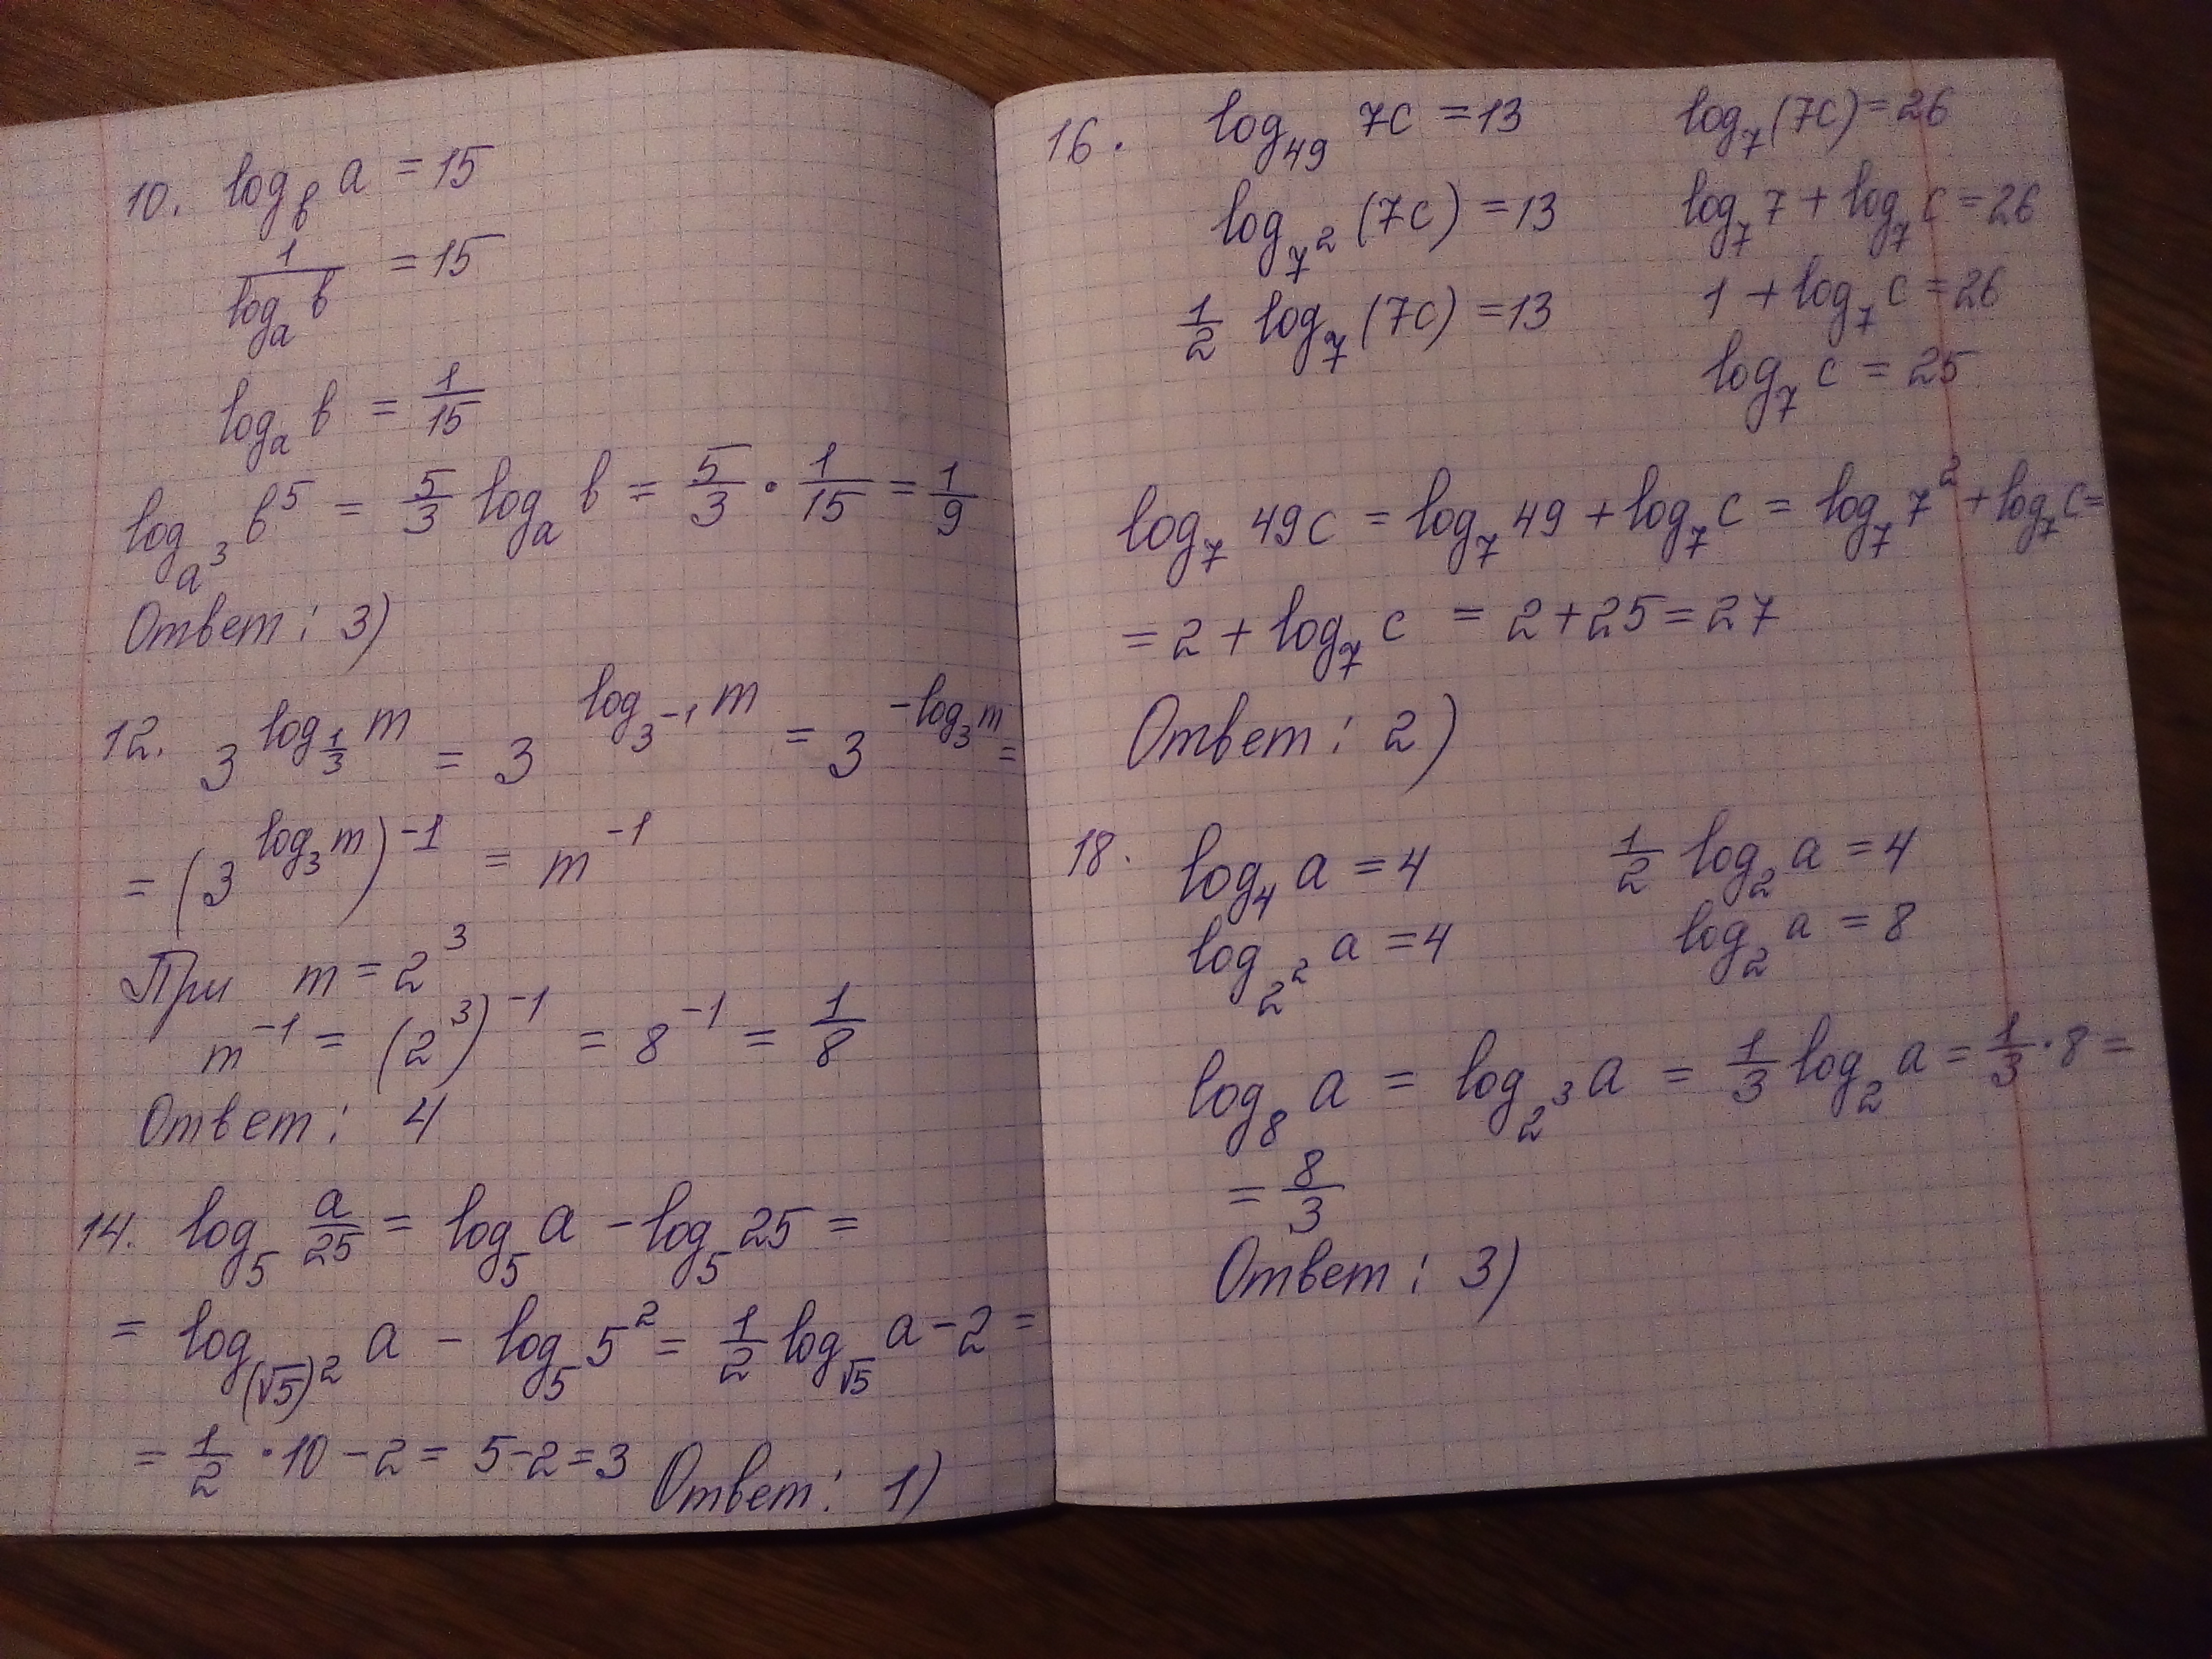 10. log_b a = 15
1/(log_a b) = 15
log_a b = 1/15
log_{a^3} b^5 = 5/3 log_a b = 5/3 · 1/15 = 1/9
Ответ: 3)
12. 3^{log_{1/3} m} = 3^{log_{3^{-1}} m} = 3^{-log_3 m} =
= (3^{log_3 m})^{-1} = m^{-1}
При m = 2^3
m^{-1} = (2^3)^{-1} = 8^{-1} = 1/8
Ответ: 4
14. log_5 a/25 = log_5 a - log_5 25 =
= log_{(√5)^2} a - log_5 5^2 = 1/2 log_{√5} a - 2 =
= 1/2 · 10 - 2 = 5 - 2 = 3 Ответ: 1)
16. log_49 7c = 13
log_{7^2} (7c) = 13
1/2 log_7 (7c) = 13
log_7 (7c) = 26
log_7 7 + log_7 c = 26
1 + log_7 c = 26
log_7 c = 25
log_7 49c = log_7 49 + log_7 c = log_7 7^2 + log_7 c =
= 2 + log_7 c = 2 + 25 = 27
Ответ: 2)
18. log_4 a = 4
log_{2^2} a = 4
1/2 log_2 a = 4
log_2 a = 8
log_8 a = log_{2^3} a = 1/3 log_2 a = 1/3 · 8 =
= 8/3
Ответ: 3)